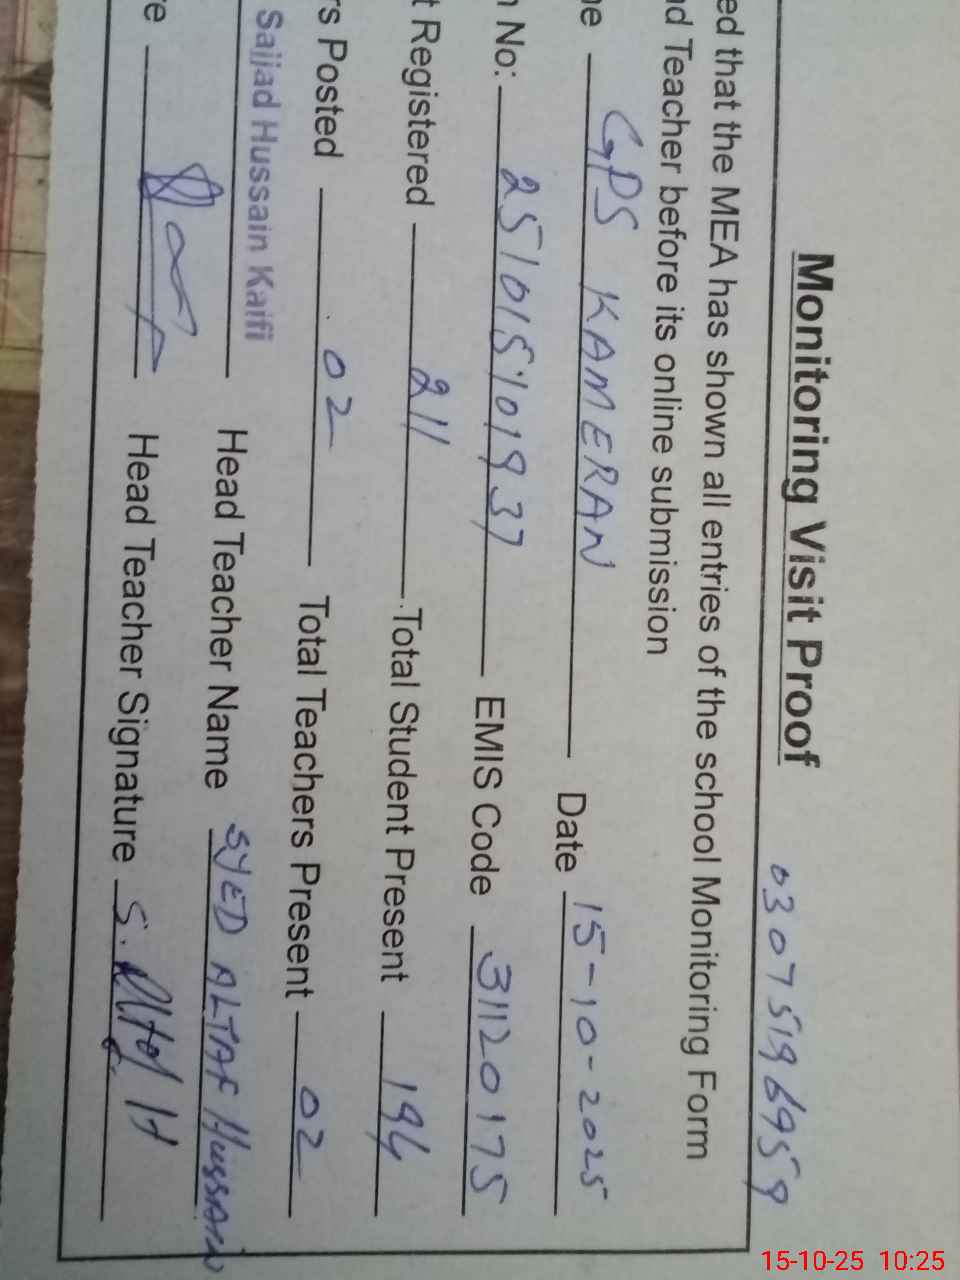 Monitoring Visit Proof 03075196959
ed that the MEA has shown all entries of the school Monitoring Form
d Teacher before its online submission
ne GPS KAMERAN Date 15-10-2025
n No: 251015101937 EMIS Code 31120175
t Registered 211 Total Student Present 194
rs Posted 02 Total Teachers Present 02
Sajjad Hussain Kaifi Head Teacher Name SYED ALTAF HUSSAIN
re Head Teacher Signature
15-10-25 10:25